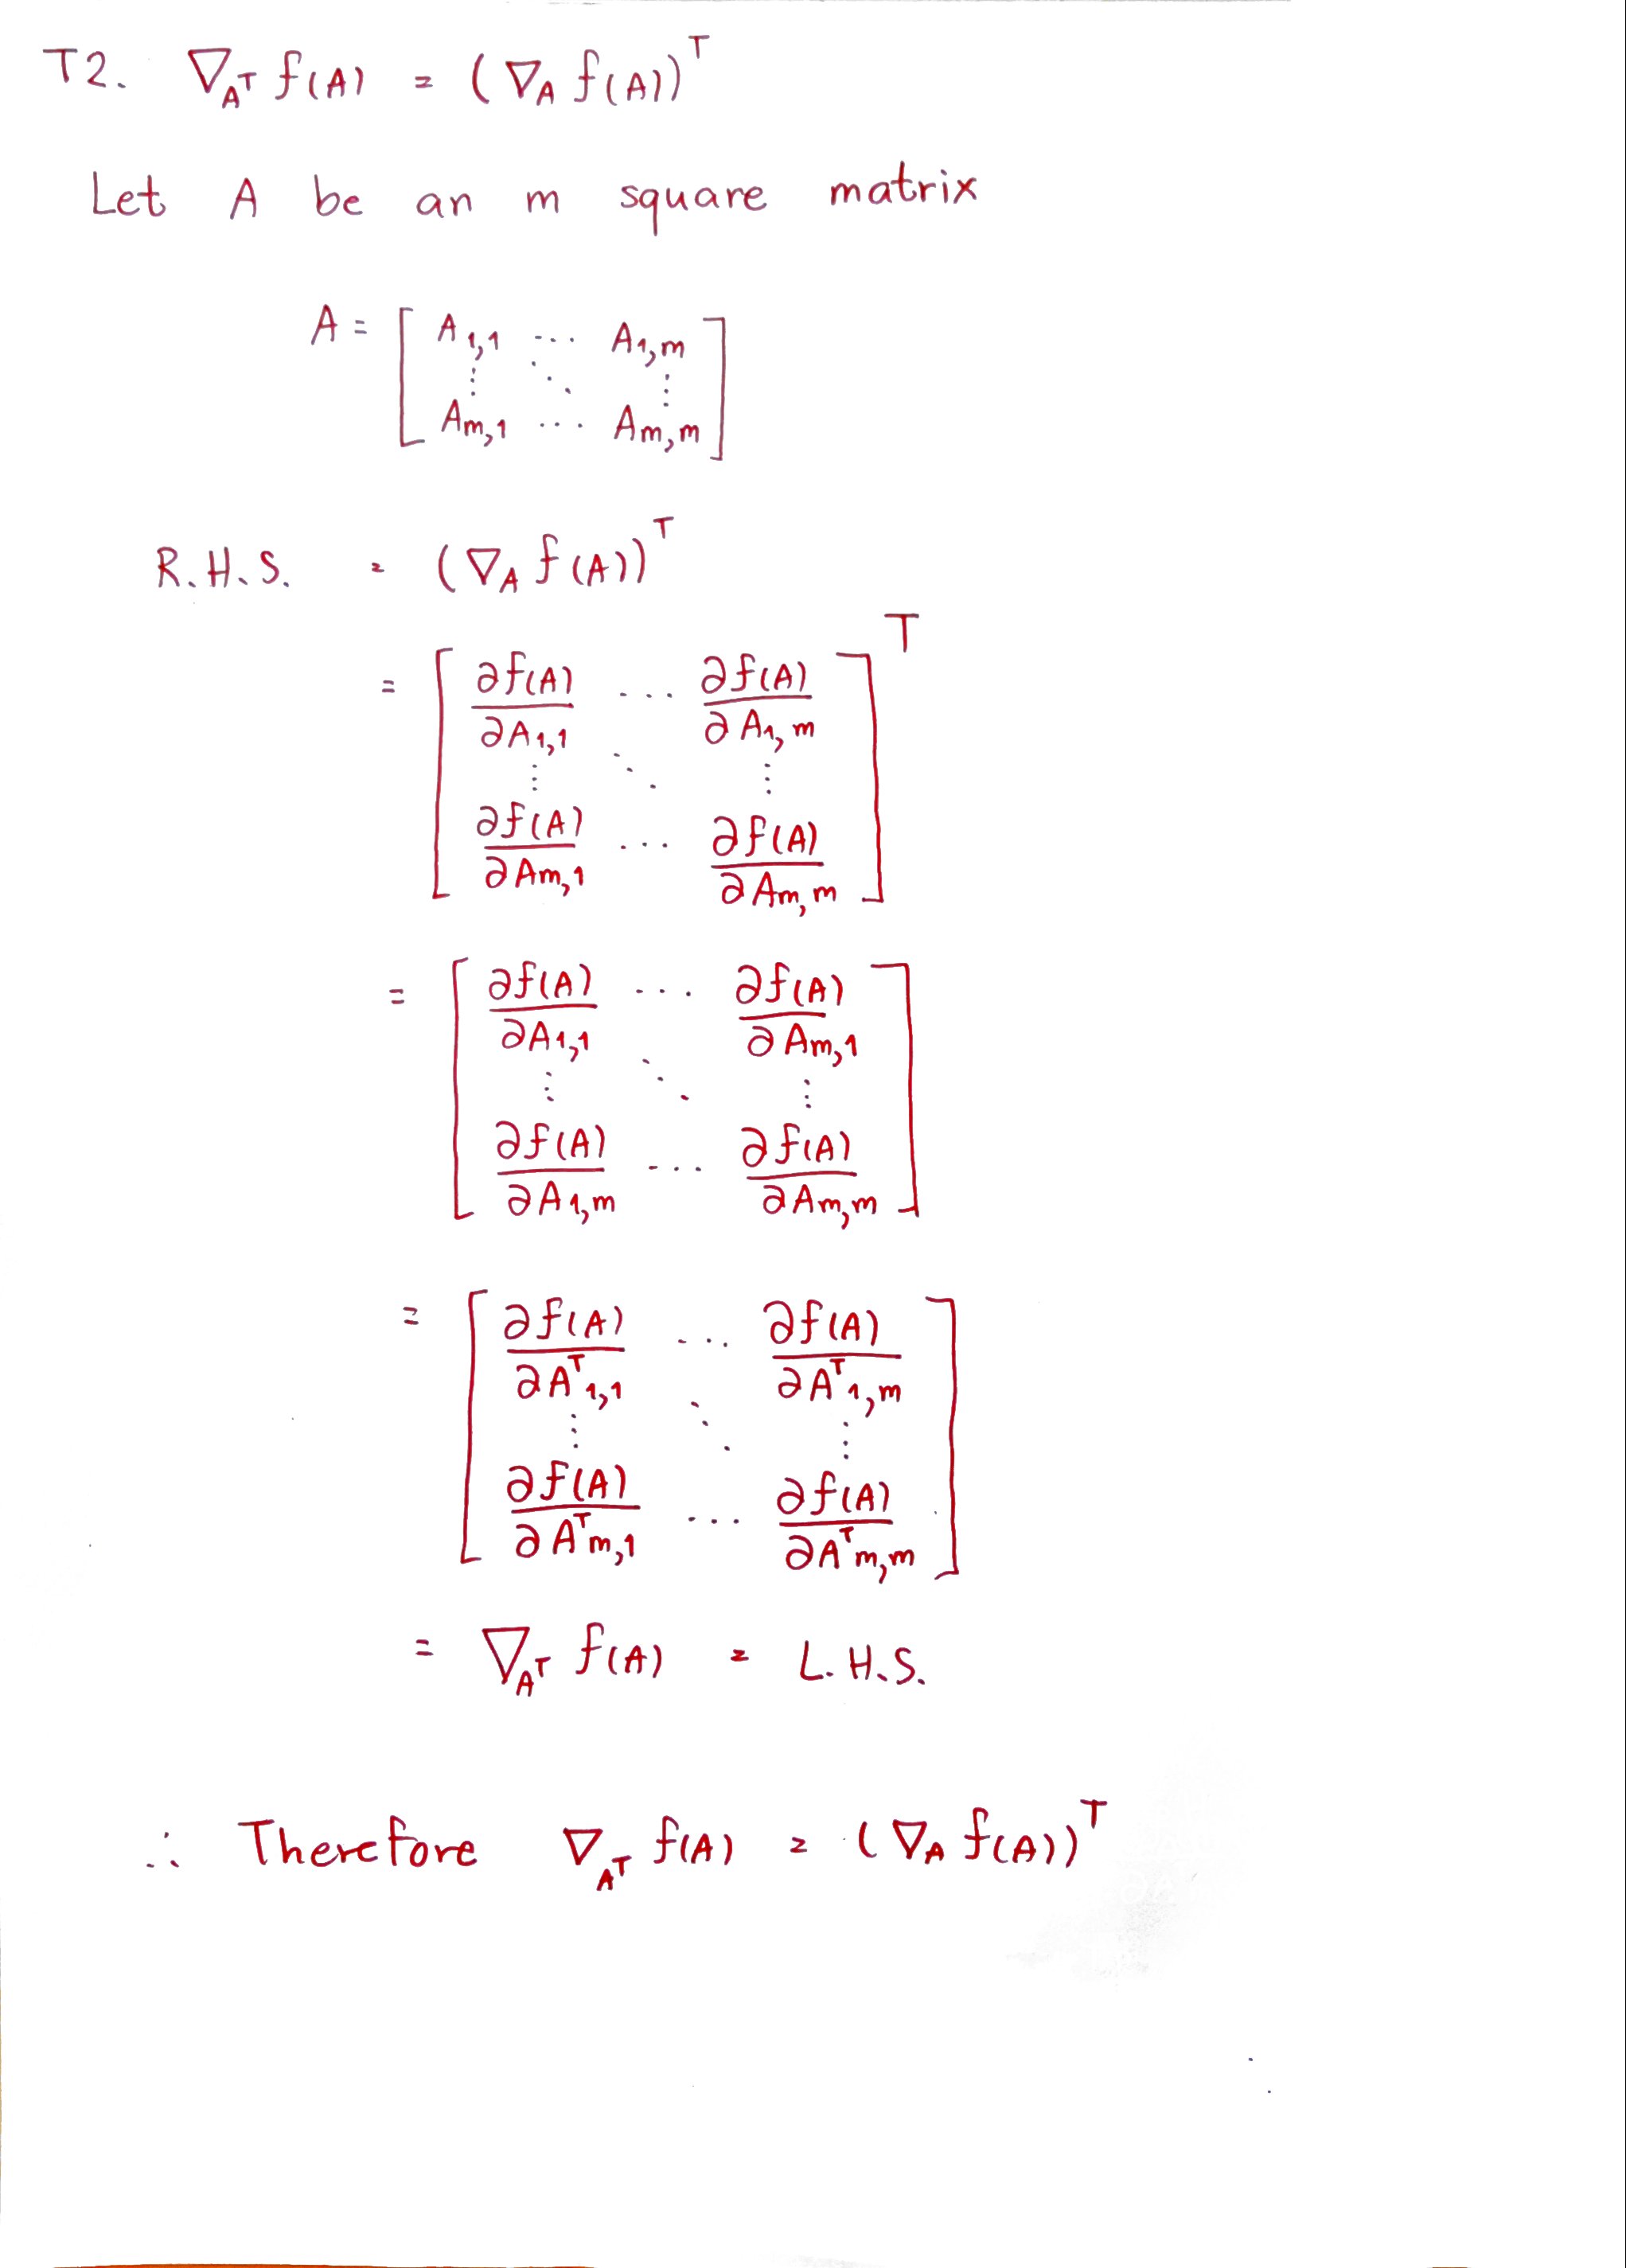 T2. ∇_{A^T} f(A) = (∇_A f(A))^T
Let A be an m square matrix
A = [ A_{1,1} ... A_{1,m}
⋮ ⋱ ⋮
A_{m,1} ... A_{m,m} ]
R.H.S. = (∇_A f(A))^T
= [ ∂f(A)/∂A_{1,1} ... ∂f(A)/∂A_{1,m}
⋮ ⋱ ⋮
∂f(A)/∂A_{m,1} ... ∂f(A)/∂A_{m,m} ]^T
= [ ∂f(A)/∂A_{1,1} ... ∂f(A)/∂A_{m,1}
⋮ ⋱ ⋮
∂f(A)/∂A_{1,m} ... ∂f(A)/∂A_{m,m} ]
= [ ∂f(A)/∂A^T_{1,1} ... ∂f(A)/∂A^T_{1,m}
⋮ ⋱ ⋮
∂f(A)/∂A^T_{m,1} ... ∂f(A)/∂A^T_{m,m} ]
= ∇_{A^T} f(A) = L.H.S.
∴ Therefore ∇_{A^T} f(A) = (∇_A f(A))^T